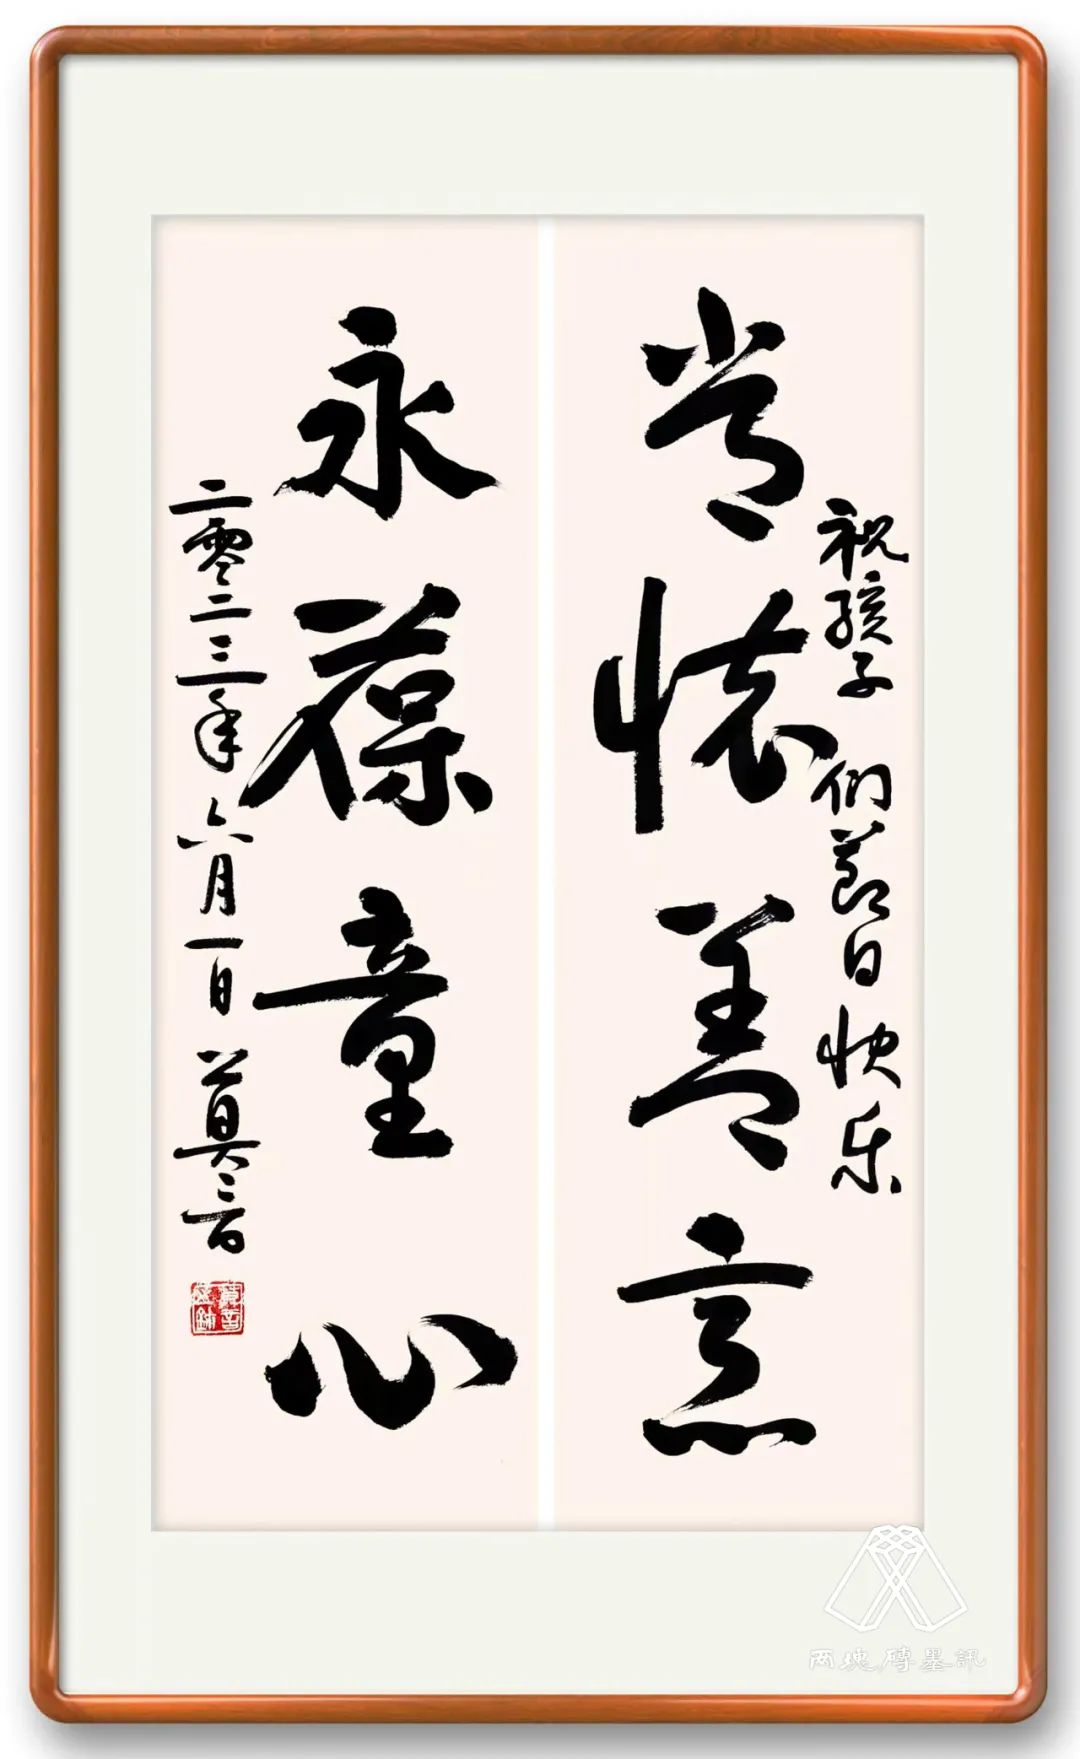 祝孩子们節日快乐
常懷善意
永葆童心
二零二三年六月一日 莫言
两塊磚墨訊